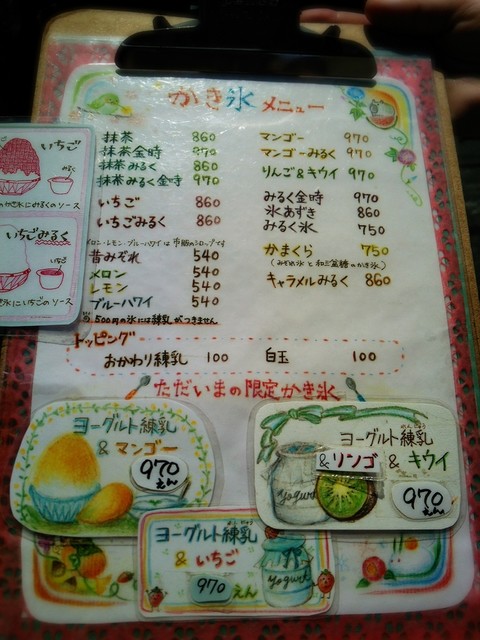 かき氷 メニュー
抹茶 860
抹茶金時 970
抹茶みるく 860
抹茶みるく金時 970
いちご 860
いちごみるく 860
メロン・レモン・ブルーハワイは市販のシロップです
昔みぞれ 540
メロン 540
レモン 540
ブルーハワイ 540
500円の氷には練乳がつきません
マンゴー 970
マンゴーみるく 970
りんご&キウイ 970
みるく金時 970
氷あずき 860
みるく氷 750
かまくら 750
(みぞれ氷と和三盆糖のかき氷)
キャラメルみるく 860
トッピング
おかわり練乳 100 白玉 100
ただいまの限定かき氷
ヨーグルト練乳
&マンゴー
970
えん
ヨーグルト練乳
&リンゴ&キウイ
970
えん
yogurt
ヨーグルト練乳
&いちご
970えん
yogurt
いちご
みるく
のかき氷にみるくのソース
いちごみるく
いちご
氷にいちごのソース